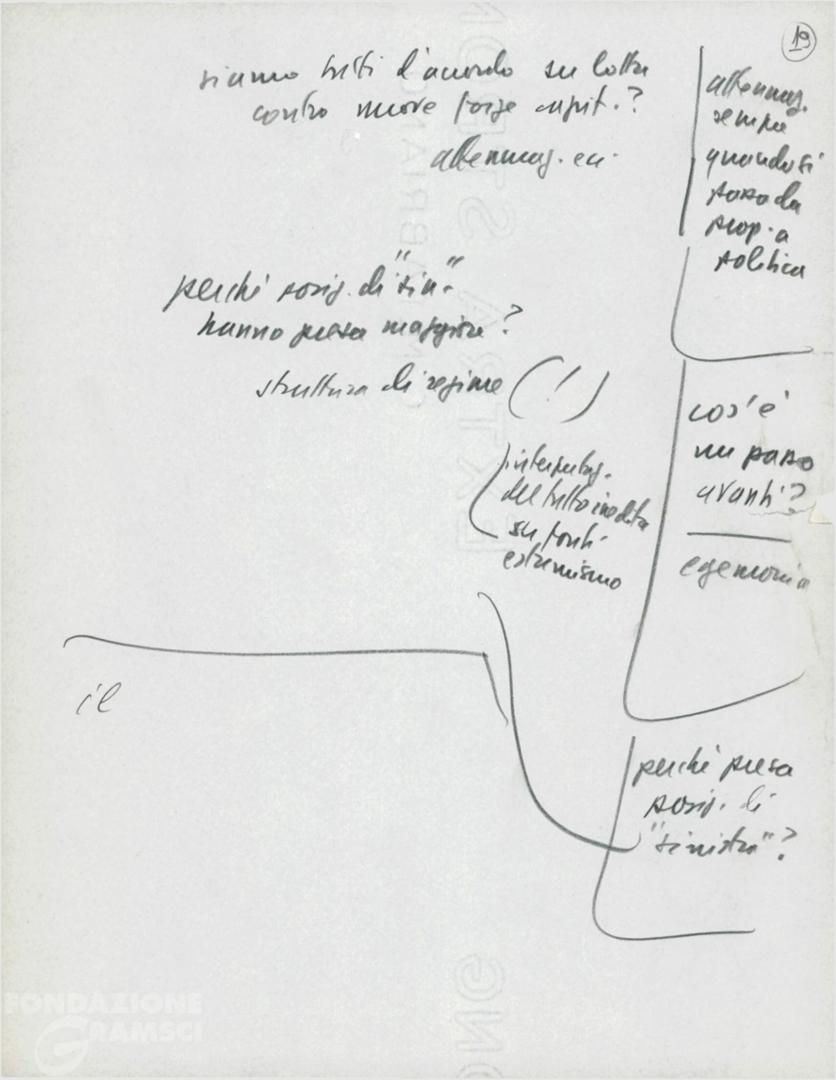 19
siamo tutti d'accordo su lotta
contro nuove forze capit.?
attenuaz. ecc.
perché posiz. di "sin."
hanno presa maggiore?
struttura di regime (!)
interpretaz.
del tutto inedita
su fonti
estremismo
il
attenuaz.
sempre
quando si
passa da
prop. a
politica
cos'è
un passo
avanti?
egemonia
perché presa
posiz. di
"sinistra"?
FONDAZIONE
GRAMSCI